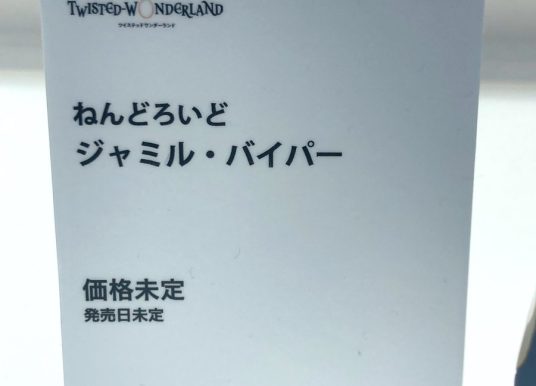 TWISTED-WONDERLAND
ツイステッドワンダーランド
ねんどろいど
ジャミル・バイパー
価格未定
発売日未定